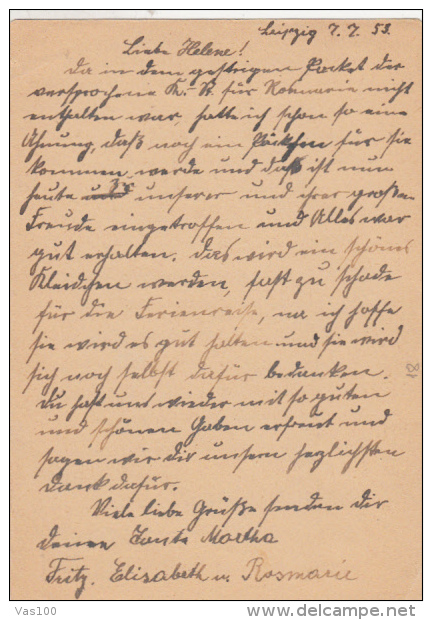 Leipzig 7.7.53.
Liebe Helene!
Da in dem gestrigen Packet der
versprochene K.-St. für Rosmarie nicht
enthalten war, hatte ich schon so eine
Ahnung, daß noch ein Päckchen für sie
kommen werde und daß ist nun
heute zu unserer und ihrer großen
Freude eingetroffen und Alles war
gut erhalten. Das wird ein schönes
Kleidchen werden, fast zu schade
für die Ferienreise, na ich hoffe
sie wird es gut halten und sie wird
sich noch selbst dafür bedanken.
Du hast uns wieder mit so guten
und schönen Gaben erfreut und
sagen wir dir unsern herzlichsten
Dank dafür.
Viele liebe Grüße senden dir
deine Tante Martha
Fritz, Elisabeth u. Rosmarie
Vas100
delcampe.net